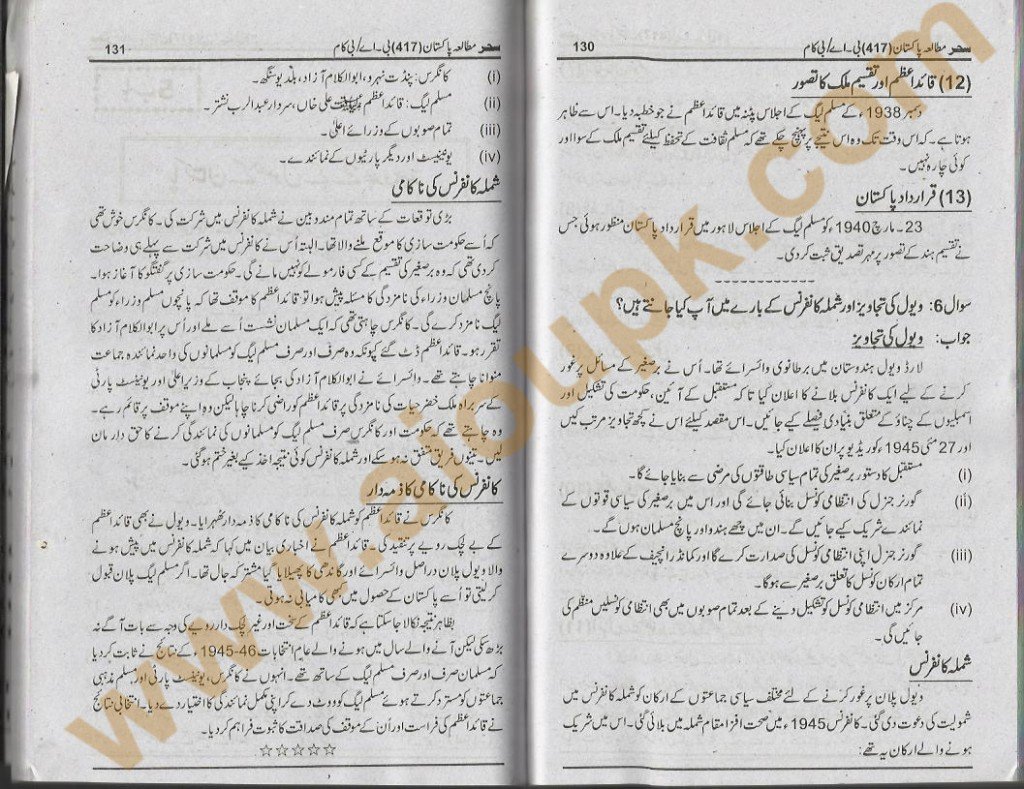 130
سحر مطالعہ پاکستان (417) بی۔اے/بی کام
(12) قائداعظم اور تقسیم ملک کا تصور
دسمبر 1938ء کے مسلم لیگ کے اجلاس پٹنہ میں قائداعظم نے جو خطبہ دیا۔ اس سے ظاہر
ہوتا ہے۔ کہ اس وقت تک وہ اس نتیجے پر پہنچ چکے تھے کہ مسلم ثقافت کے تحفظ کیلئے تقسیم ملک کے سوا اور
کوئی چارہ نہیں۔
(13) قرارداد پاکستان
23۔ مارچ 1940ء کو مسلم لیگ کے اجلاس لاہور میں قرارداد پاکستان منظور ہوئی جس
نے تقسیم ہند کے تصور پر مہر تصدیق ثبت کر دی۔
سوال 6: ویول کی تجاویز اور شملہ کانفرنس کے بارے میں آپ کیا جانتے ہیں؟
جواب: ویول کی تجاویز
لارڈ ویول ہندوستان میں برطانوی وائسرائے تھا۔ اُس نے برصغیر کے مسائل پر غور
کرنے کے لیے ایک کانفرنس بلانے کا اعلان کیا تا کہ مستقبل کے آئین، حکومت کی تشکیل اور
اسمبلیوں کے چناؤ کے متعلق بنیادی فیصلے کیے جائیں۔ اس مقصد کیلئے اس نے کچھ تجاویز مرتب کیں
اور 27 مئی 1945ء کو ریڈیو پر ان کا اعلان کیا۔
(i) مستقبل کا دستور برصغیر کی تمام سیاسی طاقتوں کی مرضی سے بنایا جائے گا۔
(ii) گورنر جنرل کی انتظامی کونسل بنائی جائے گی اور اس میں برصغیر کی سیاسی قوتوں کے
نمائندے شریک کیے جائیں گے۔ ان میں چھے ہندو اور پانچ مسلمان ہوں گے۔
(iii) گورنر جنرل اپنی انتظامی کونسل کی صدارت کرے گا اور کمانڈر انچیف کے علاوہ دوسرے
تمام ارکان کونسل کا تعلق برصغیر سے ہوگا۔
(iv) مرکز میں انتظامی کونسل کو تشکیل دینے کے بعد تمام صوبوں میں بھی انتظامی کونسلیں منظم کی
جائیں گی۔
شملہ کانفرنس
ویول پلان پر غور کرنے کے لئے مختلف سیاسی جماعتوں کے ارکان کو شملہ کانفرنس میں
شمولیت کی دعوت دی گئی۔ کانفرنس 1945ء میں صحت افزا مقام شملہ میں بلائی گئی۔ اس میں شریک
ہونے والے ارکان یہ تھے:
131
سحر مطالعہ پاکستان (417) بی۔اے/بی کام
(i) کانگرس: پنڈت نہرو، ابوالکلام آزاد، بلدیو سنگھ۔
(ii) مسلم لیگ: قائداعظم لیاقت علی خاں، سردار عبدالرب نشتر۔
(iii) تمام صوبوں کے وزرائے اعلیٰ۔
(iv) یونینسٹ اور دیگر پارٹیوں کے نمائندے۔
شملہ کانفرنس کی ناکامی
بڑی توقعات کے ساتھ تمام مندوبین نے شملہ کانفرنس میں شرکت کی۔ کانگرس خوش تھی
کہ اُسے حکومت سازی کا موقع ملنے والا تھا۔ البتہ اُس نے کانفرنس میں شرکت سے پہلے ہی وضاحت
کر دی تھی کہ وہ برصغیر کی تقسیم کے کسی فارمولے کو نہیں مانے گی۔ حکومت سازی پر گفتگو کا آغاز ہوا۔
پانچ مسلمان وزراء کی نامزدگی کا مسئلہ پیش ہوا تو قائداعظم کا موقف تھا کہ پانچوں مسلم وزراء کو مسلم
لیگ نامزد کرے گی۔ کانگرس چاہتی تھی کہ ایک مسلمان نشست اُسے ملے اور اُس پر ابوالکلام آزاد کا
تقرر ہو۔ قائداعظم ڈٹ گئے کیونکہ وہ صرف اور صرف مسلم لیگ کو مسلمانوں کی واحد نمائندہ جماعت
منوانا چاہتے تھے۔ وائسرائے نے ابوالکلام آزاد کی بجائے پنجاب کے وزیر اعلیٰ اور یونینسٹ پارٹی
کے سربراہ ملک خضر حیات کی نامزدگی پر قائداعظم کو راضی کرنا چاہا لیکن وہ اپنے موقف پر قائم رہے۔
وہ چاہتے تھے کہ حکومت اور کانگرس صرف مسلم لیگ کو مسلمانوں کی نمائندگی کرنے کا حق دار مان
لیں۔ تینوں فریق متفق نہ ہو سکے اور شملہ کانفرنس کوئی نتیجہ اخذ کیے بغیر ختم ہو گئی۔
کانفرنس کی ناکامی کا ذمہ دار
کانگرس نے قائداعظم کو شملہ کانفرنس کی ناکامی کا ذمہ دار ٹھہرایا۔ ویول نے بھی قائداعظم
کے بے لچک رویے پر تنقید کی۔ قائداعظم نے اخباری بیان میں کہا کہ شملہ کانفرنس میں پیش ہونے
والا ویول پلان دراصل وائسرائے اور گاندھی کا پھیلایا گیا مشترکہ جال تھا۔ اگر مسلم لیگ پلان قبول
کر لیتی تو اُسے پاکستان کے حصول میں کبھی کامیابی نہ ہوتی۔
بظاہر نتیجہ نکالا جا سکتا ہے کہ قائداعظم کے سخت اور غیر لچک دار رویے کی وجہ سے بات آگے نہ
بڑھ سکی لیکن آنے والے سال میں ہونے والے عام انتخابات 46-1945ء کے نتائج نے ثابت کر دیا
کہ مسلمان صرف اور صرف مسلم لیگ کے ساتھ تھے۔ انہوں نے کانگرس، یونینسٹ پارٹی اور مسلم مذہبی
جماعتوں کو مسترد کرتے ہوئے مسلم لیگ کو ووٹ دے کر اپنی مکمل نمائندگی کا اختیار دے دیا۔ انتخابی نتائج
نے قائداعظم کی فراست اور اُن کے موقف کی صداقت کا ثبوت فراہم کر دیا۔
☆☆☆☆☆
www.aioupk.com